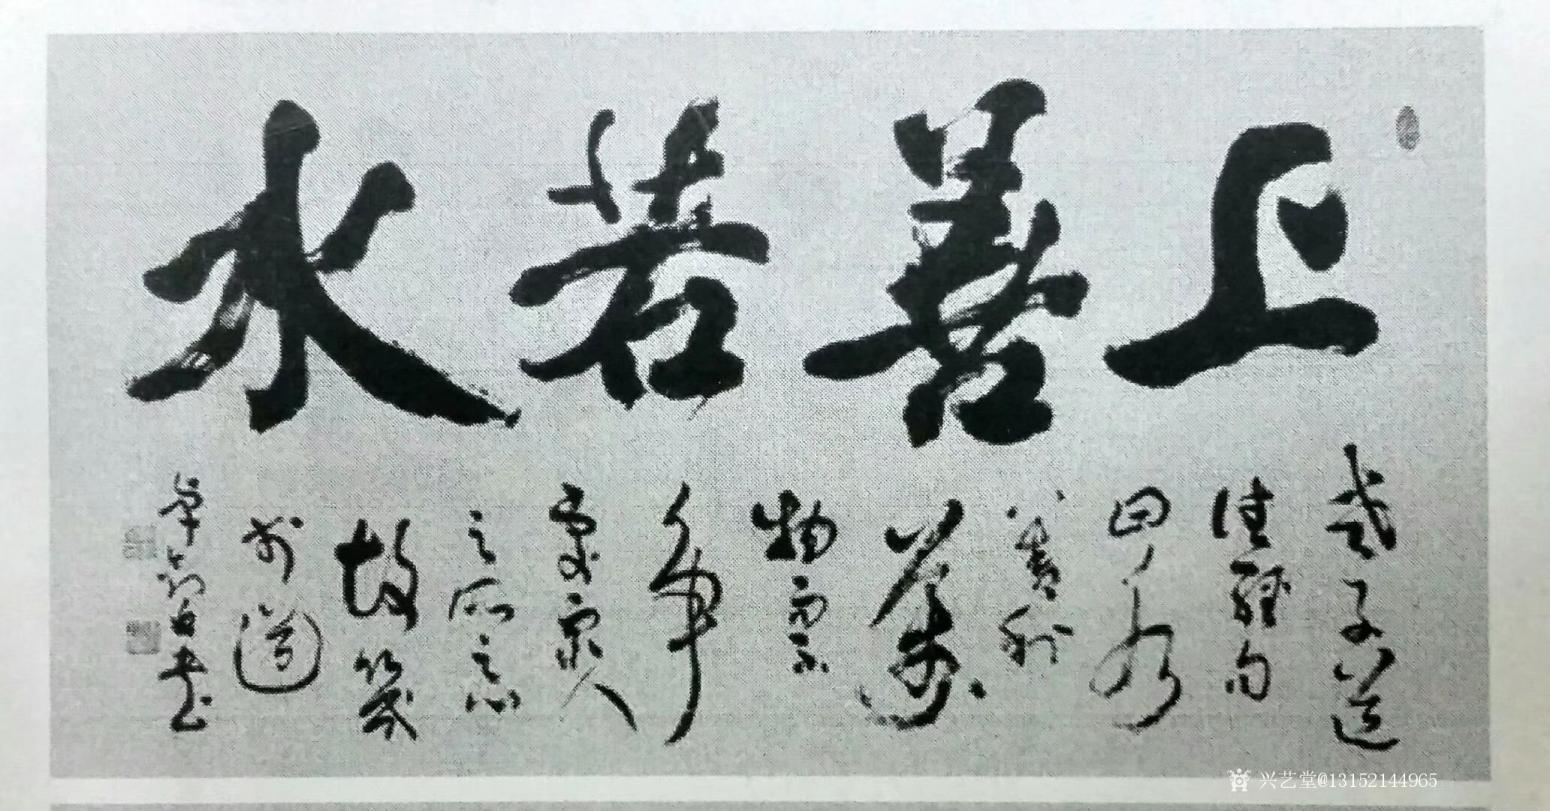 上善若水
老子道
德經句
曰水
善利
萬
物而不
爭
處眾人
之所惡
故幾
於道
書
兴艺堂@13152144965